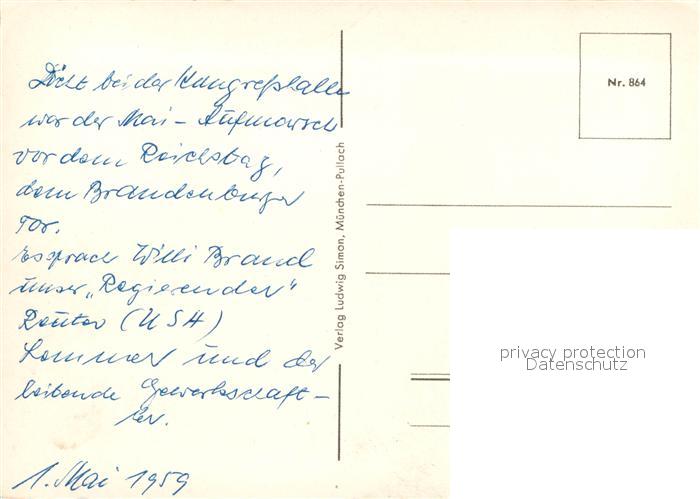 Dicht bei der Kongreßhalle
war der Mai-Aufmarsch
vor dem Reichstag,
dem Brandenburger
Tor.
Es sprach Willi Brand
unser „Regierender"
Reuter (USA)
Lemmer und der
leibende Gewerkschaft-
ler.
1. Mai 1959
Verlag Ludwig Simon, München-Pullach
Nr. 864
privacy protection
Datenschutz